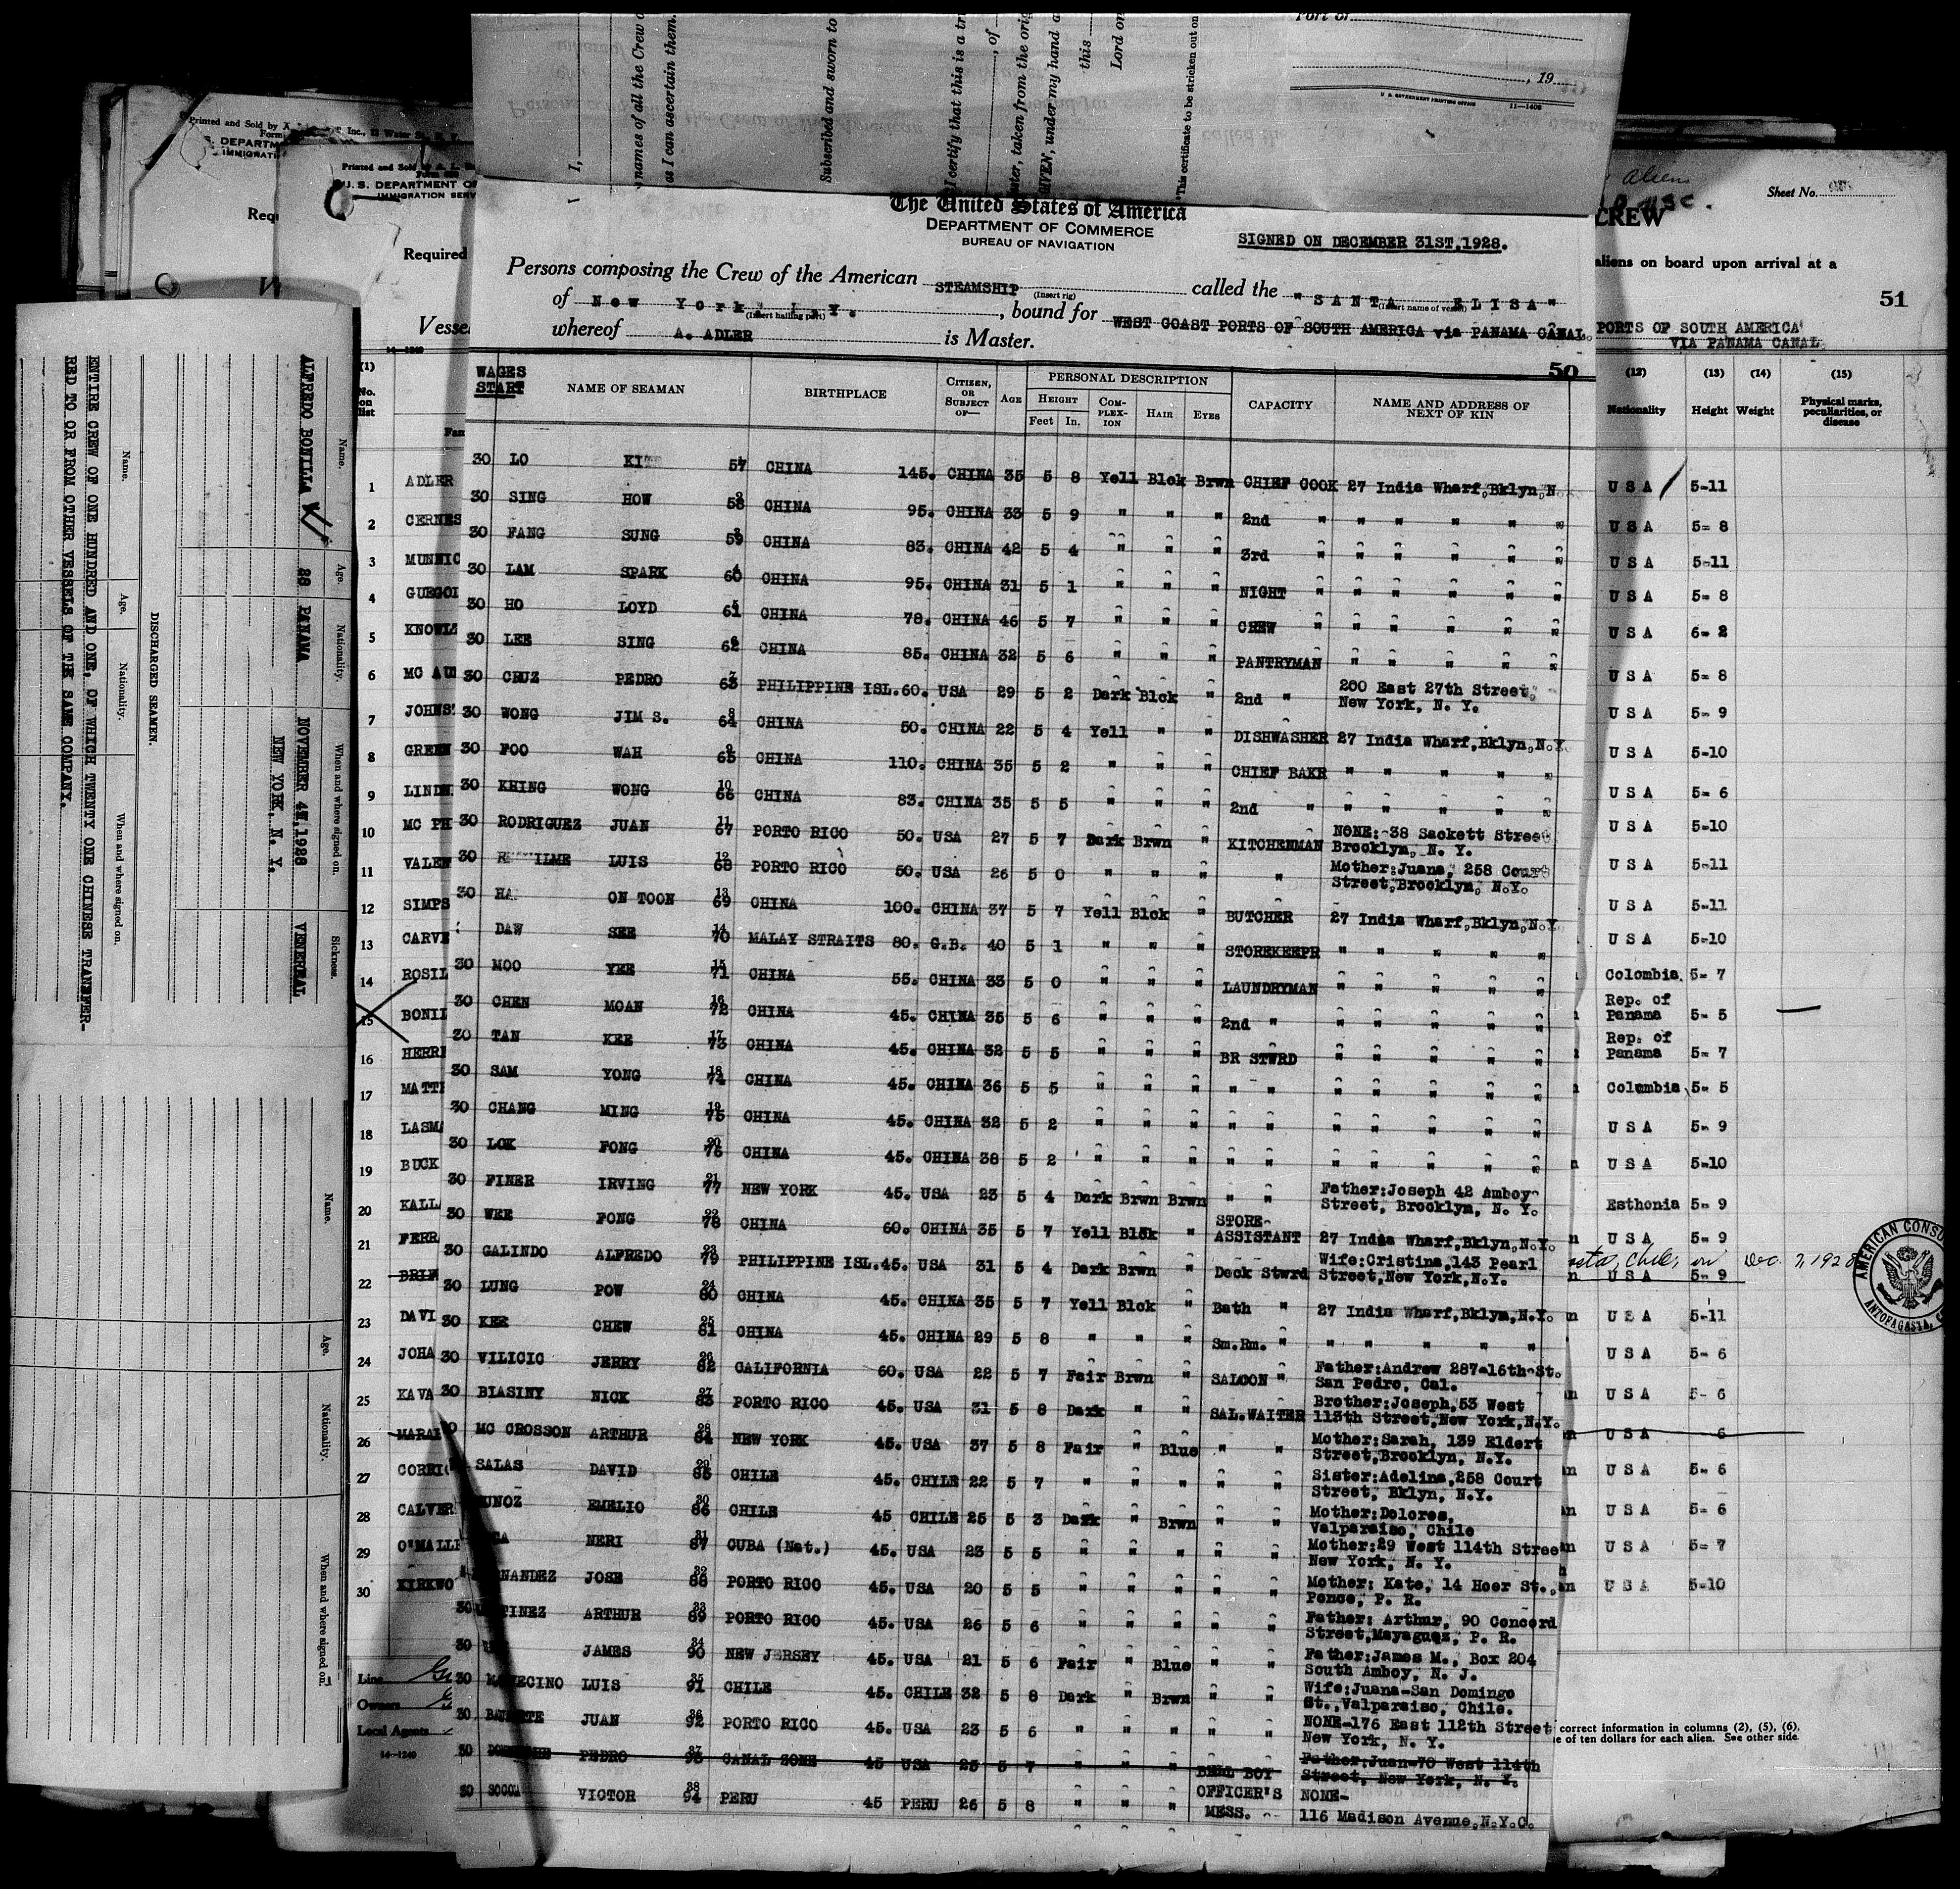 I,
names of all the Crew
as I can ascertain them.
Subscribed and sworn to
I certify that this is a
, of
taken from the
under my hand
this
Lord
This certificate to be stricken out on
Port of
, 19
U. S. GOVERNMENT PRINTING OFFICE 11—1406
The United States of America
DEPARTMENT OF COMMERCE
BUREAU OF NAVIGATION
SIGNED ON DECEMBER 31ST, 1928.
Persons composing the Crew of the American STEAMSHIP called the "SANTA ELISA"
(Insert rig) (Insert name of vessel)
of New York N.Y., bound for WEST COAST PORTS OF SOUTH AMERICA via PANAMA CANAL.
(Insert hailing port)
whereof A. ADLER is Master.
50
WAGES START NAME OF SEAMAN BIRTHPLACE CITIZEN, OR SUBJECT OF— AGE PERSONAL DESCRIPTION CAPACITY NAME AND ADDRESS OF NEXT OF KIN
HEIGHT COMPLEXION HAIR EYES
Feet In.
30 LO 57 CHINA 145. CHINA 35 5 8 Yell Blck Brwn CHIEF COOK 27 India Wharf, Bklyn, N.
30 SING HOW 58 CHINA 95. CHINA 33 5 9 " " " 2nd " " " " " "
30 FANG SUNG 59 CHINA 83. CHINA 42 5 4 " " " 3rd " " " " " "
30 LAM SPARK 60 CHINA 95. CHINA 31 5 1 " " " NIGHT " " " " " "
30 HO LOYD 61 CHINA 78. CHINA 46 5 7 " " " CREW " " " " " "
30 LEE SING 62 CHINA 85. CHINA 32 5 6 " " " PANTRYMAN " " " " "
30 CRUZ PEDRO 63 PHILIPPINE ISL. 60. USA 29 5 2 Dark Blck " 2nd " 200 East 27th Street,
New York, N. Y.
30 WONG JIM S. 64 CHINA 50. CHINA 22 5 4 Yell " " DISHWASHER 27 India Wharf, Bklyn, N.Y.
30 FOO WAH 65 CHINA 110. CHINA 35 5 2 " " " CHIEF BAKR " " " " "
30 KHING WONG 66 CHINA 83. CHINA 35 5 5 " " " 2nd " " " " " "
30 RODRIGUEZ JUAN 67 PORTO RICO 50. USA 27 5 7 Dark Brwn " KITCHENMAN NONE: 38 Sackett Street
Brooklyn, N. Y.
30 LUIS 68 PORTO RICO 50. USA 26 5 0 " " " " Mother: Juana, 258 Court
Street, Brooklyn, N.Y.
30 ON TOON 69 CHINA 100. CHINA 37 5 7 Yell Blck " BUTCHER 27 India Wharf, Bklyn, N.Y.
DAW SEE 70 MALAY STRAITS 80. G.B. 40 5 1 " " " STOREKEEPR " " " " "
30 MOO YEE 71 CHINA 55. CHINA 33 5 0 " " " LAUNDRYMAN " " " " "
30 CHEN MOAN 72 CHINA 45. CHINA 35 5 6 " " " 2nd " " " " " "
30 TAN KEE 73 CHINA 45. CHINA 32 5 5 " " " BR STWRD " " " " "
30 SAM YONG 74 CHINA 45. CHINA 36 5 5 " " " " " " " " " "
30 CHANG MING 75 CHINA 45. CHINA 32 5 2 " " " " " " " " " "
30 LOK FONG 76 CHINA 45. CHINA 38 5 2 " " " " " " " " " "
30 FINER IRVING 77 NEW YORK 45. USA 23 5 4 Dark Brwn Brwn " " Father: Joseph 42 Amboy
Street, Brooklyn, N. Y.
30 WEE FONG 78 CHINA 60. CHINA 35 5 7 Yell Blck " STORE-ASSISTANT 27 India Wharf, Bklyn, N.Y.
30 GALINDO ALFREDO 79 PHILIPPINE ISL. 45. USA 31 5 4 Dark Brwn " Deck Stwrd Wife: Cristina, 143 Pearl
Street, New York, N.Y.
30 LUNG POW 80 CHINA 45. CHINA 35 5 7 Yell Blck " Bath " 27 India Wharf, Bklyn, N.Y.
30 KEE CHEW 81 CHINA 45. CHINA 29 5 8 " " " Sm.Rm. " " " " " "
30 VILICIC JERRY 82 CALIFORNIA 60. USA 22 5 7 Fair Brwn " SALOON " Father: Andrew 287-16th St.
San Pedro, Cal.
30 BIASINY NICK 83 PORTO RICO 45. USA 31 5 8 Dark " " SAL.WAITER Brother: Joseph, 53 West
113th Street, New York, N.Y.
MC CROSSON ARTHUR 84 NEW YORK 45. USA 37 5 8 Fair " Blue " " Mother: Sarah, 139 Eldert
Street, Brooklyn, N.Y.
SALAS DAVID 85 CHILE 45. CHILE 22 5 7 " " " " " Sister: Adelina, 258 Court
Street, Bklyn, N.Y.
UNOZ EMELIO 86 CHILE 45 CHILE 25 5 3 Dark " Brwn " Mother: Dolores,
Valparaiso, Chile
NERI 87 CUBA (Nat.) 45. USA 23 5 5 " " " " Mother: 29 West 114th Street
New York, N. Y.
NANDEZ JOSE 88 PORTO RICO 45. USA 20 5 5 " " " " " Mother: Kate, 14 Hoer St.,
Ponce, P. R.
30 TINEZ ARTHUR 89 PORTO RICO 45. USA 26 5 6 " " " " " Father: Arthur, 90 Concord
Street, Mayaguez, P. R.
30 JAMES 90 NEW JERSEY 45. USA 21 5 6 Fair " Blue " " Father: James M., Box 204
South Amboy, N. J.
30 ECINO LUIS 91 CHILE 45. CHILE 32 5 8 Dark " Brwn " " Wife: Juana-San Domingo
St., Valparaiso, Chile.
30 JUAN 92 PORTO RICO 45. USA 23 5 6 " " " " " NONE-176 East 112th Street
New York, N. Y.
30 PEDRO 93 CANAL ZONE 45 USA 25 5 7 " " " BELL BOY Father: Juan-70 West 114th
Street, New York, N. Y.
30 VICTOR 94 PERU 45 PERU 26 5 8 " " " OFFICER'S MESS. NONE-
116 Madison Avenue, N.Y.C.
Printed and Sold by Inc., 12 Water St., N. Y.
Form
DEPARTM
IMMIGRATI
Requ
Printed and Sold by A. L.
U. S. DEPARTMENT OF
IMMIGRATION SERV
Required
Vesse
14—1240
(1)
No. on list
Fam
1 ADLER
2 CERNES
3 MUNNIC
4 GUEGOI
5 KNOWL
6 MC AU
7 JOHNS
8 GREEN
9 LINDE
10 MC PH
11 VALEN
12 SIMPS
13 CARVE
14 ROSIL
15 BONIL
16 HERR
17 MATT
18 LASMA
19 BUCK
20 KALL
21 FERR
22 BRIN
23 DAVI
24 JOHA
25 KAVA
26 MARA
27 CORRI
28 CALVER
29 O'MALLE
30 KIRKWO
Line
Owners
Local Agents
14—1240
Aliens
Sheet No.
CREW
aliens on board upon arrival at a
51
PORTS OF SOUTH AMERICA
VIA PANAMA CANAL
(12) (13) (14) (15)
Nationality Height Weight Physical marks, peculiarities, or disease
U S A 5-11
U S A 5- 8
U S A 5-11
U S A 5- 8
U S A 6- 2
U S A 5- 8
U S A 5- 9
U S A 5-10
U S A 5- 6
U S A 5-10
U S A 5-11
U S A 5-11
U S A 5-10
Colombia 5- 7
Rep. of Panama 5- 5
Rep. of Panama 5- 7
Columbia 5- 5
U S A 5- 9
U S A 5-10
Esthonia 5- 9
U S A 5- 9
Chile, on Dec. 7, 1928
U S A 5- 9
U S A 5-11
U S A 5- 6
U S A 5- 6
U S A 6
U S A 5- 6
U S A 5- 6
U S A 5- 7
U S A 5-10
AMERICAN CONSU
ANTOFAGASTA, C
correct information in columns (2), (5), (6),
e of ten dollars for each alien. See other side.
DISCHARGED SEAMEN.
Name. Age. Nationality. When and where signed on. Sickness.
ALFREDO BONILLA 28 PANAMA NOVEMBER 4TH, 1928 VENEREAL
NEW YORK, N. Y.
Name. Age. Nationality. When and where signed on.
ENTIRE CREW OF ONE HUNDRED AND ONE, OF WHICH TWENTY ONE CHINESE TRANSFER-
RED TO OR FROM OTHER VESSELS OF THE SAME COMPANY.
Name. Age. Nationality. When and where signed on.